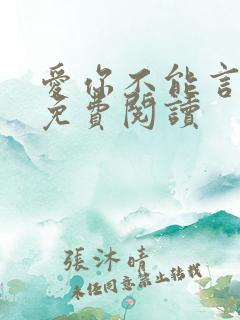 愛你不能言
免費閱讀
張沐晴
未經同意禁止轉載